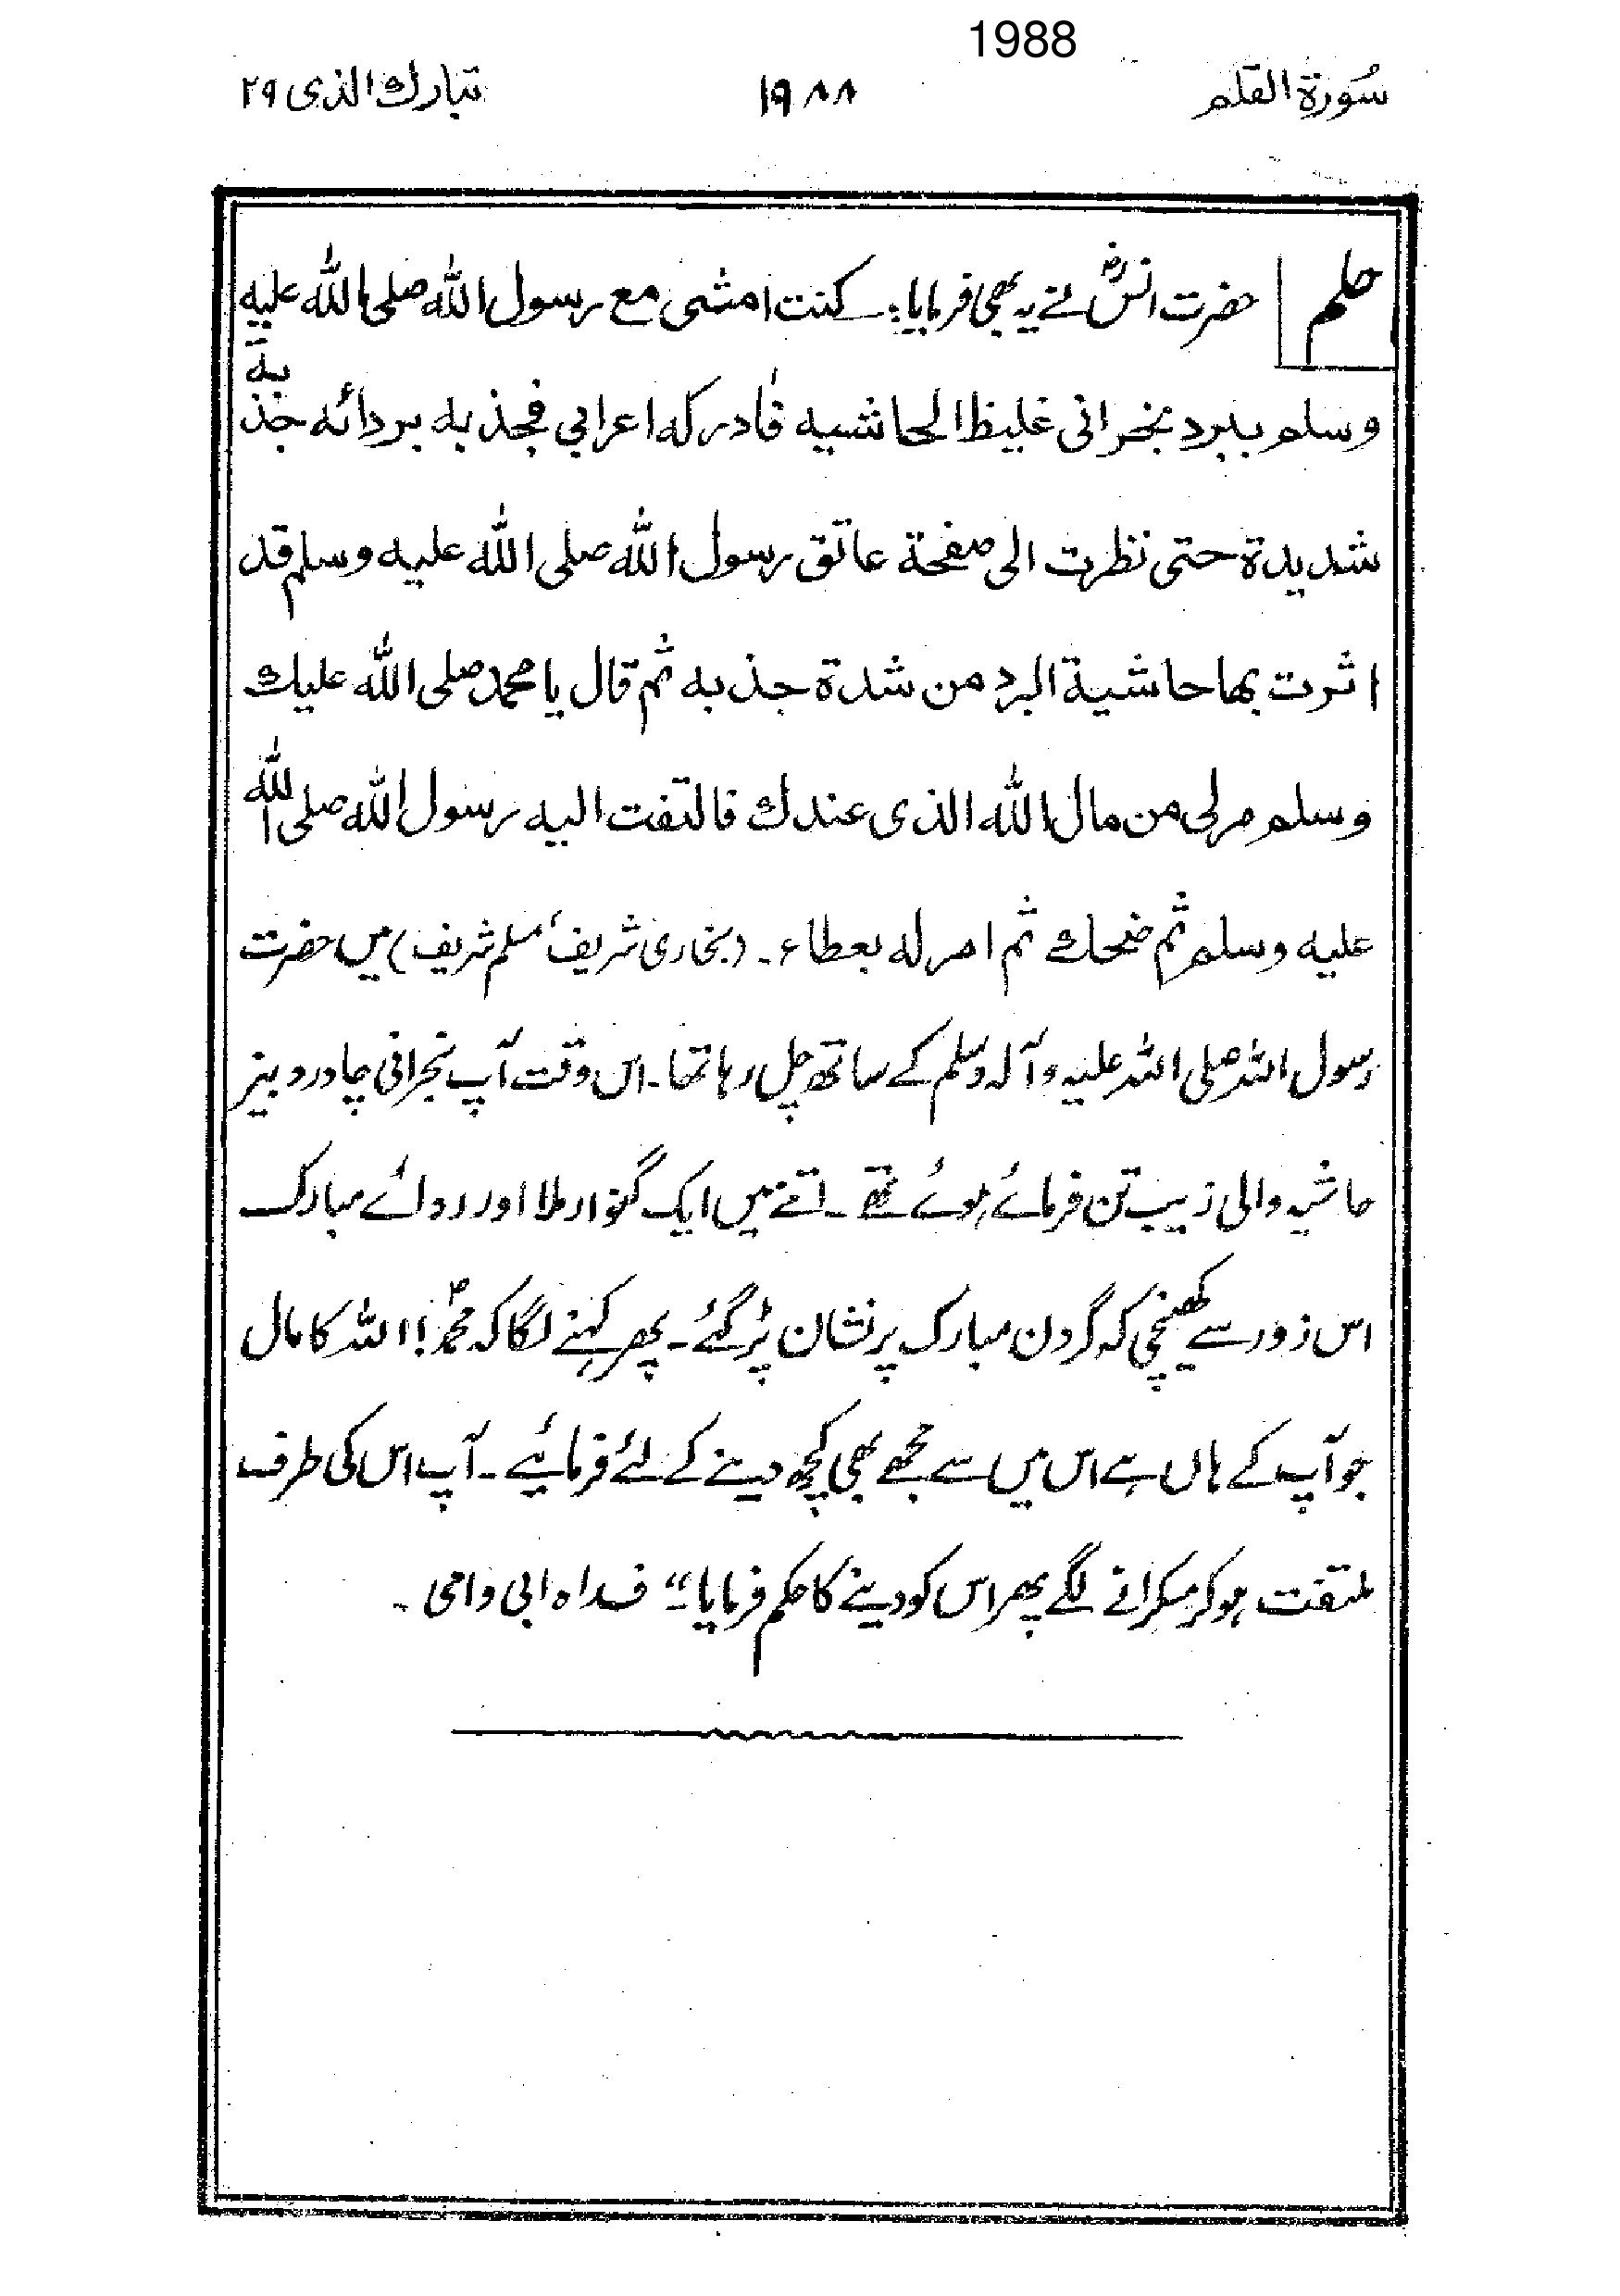 1988
سُورة القلم ۱۹۸۸ تبارك الذی ۲۹
حلم حضرت انسؓ نے یہ بھی فرمایا:۔ كنت امشی مع رسول الله صلی الله علیه
وسلم ببرد نجرانی غلیظ الحاشیه فادركه اعرابی فجذ به بردائه جذبة
شدیدة حتی نظرت الی صفحة عاتق رسول الله صلی الله علیه وسلم قد
اثرت بها حاشیة البرد من شدة جذ به ثم قال یا محمد صلی الله علیك
وسلم مر لی من مال الله الذی عندك فالتفت الیه رسول الله صلی الله
علیه وسلم ثم ضحك ثم امر له بعطاء۔ (بخاری شریف، مسلم شریف) میں حضرت
رسول اللہ صلی اللہ علیہ وآلہ وسلم کے ساتھ چل رہا تھا۔ اس وقت آپ نجرانی چادر دبیز
حاشیہ والی زیب تن فرمائے ہوئے تھے۔ اتنے میں ایک گنوار ملا اور ردائے مبارک
اس زور سے کھینچی کہ گردن مبارک پر نشان پڑ گئے۔ پھر کہنے لگا کہ محمدؐ! اللہ کا مال
جو آپ کے ہاں ہے اس میں سے مجھے بھی کچھ دینے کے لئے فرمائیے۔ آپ اس کی طرف
ملتفت ہو کر مسکرانے لگے پھر اس کو دینے کا حکم فرمایا۔" فداہ ابی وامی۔